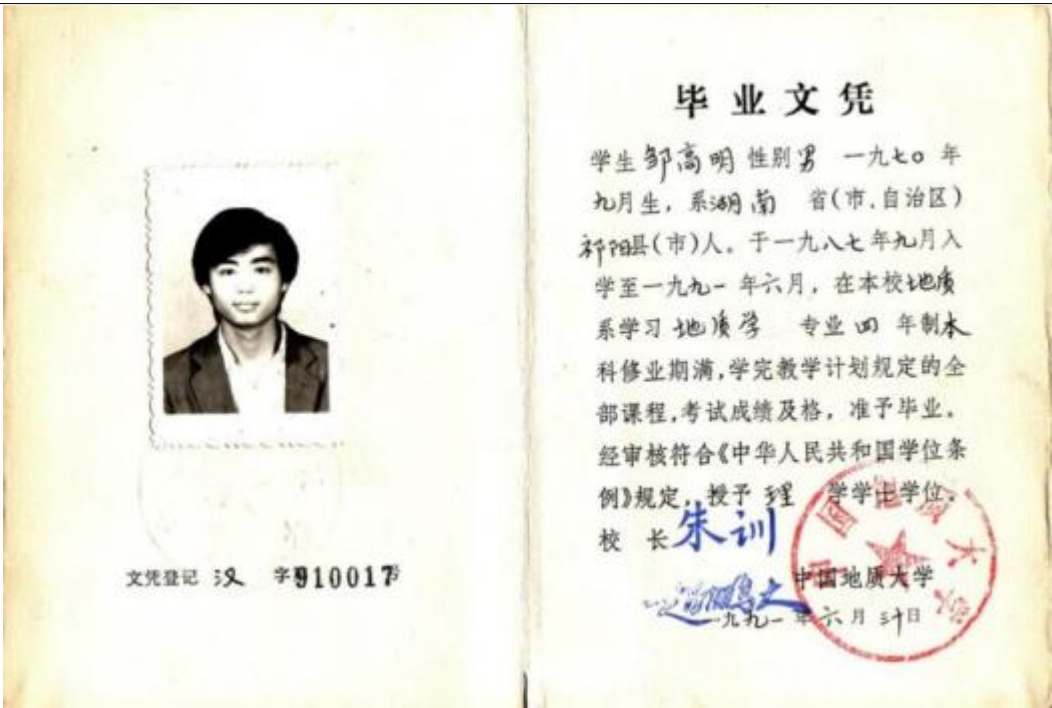 文凭登记 汉 字 910017号
毕业文凭
学生邹高明 性别男 一九七〇年
九月生，系湖南 省(市、自治区)
祁阳县(市)人。于一九八七年九月入
学至一九九一年六月，在本校地质
系学习地质学 专业四年制本
科修业期满，学完教学计划规定的全
部课程，考试成绩及格，准予毕业。
经审核符合《中华人民共和国学位条
例》规定，授予理 学学士学位。
校 长 朱训
赵鹏大
中国地质大学
一九九一年六月三十日
中国地质大学